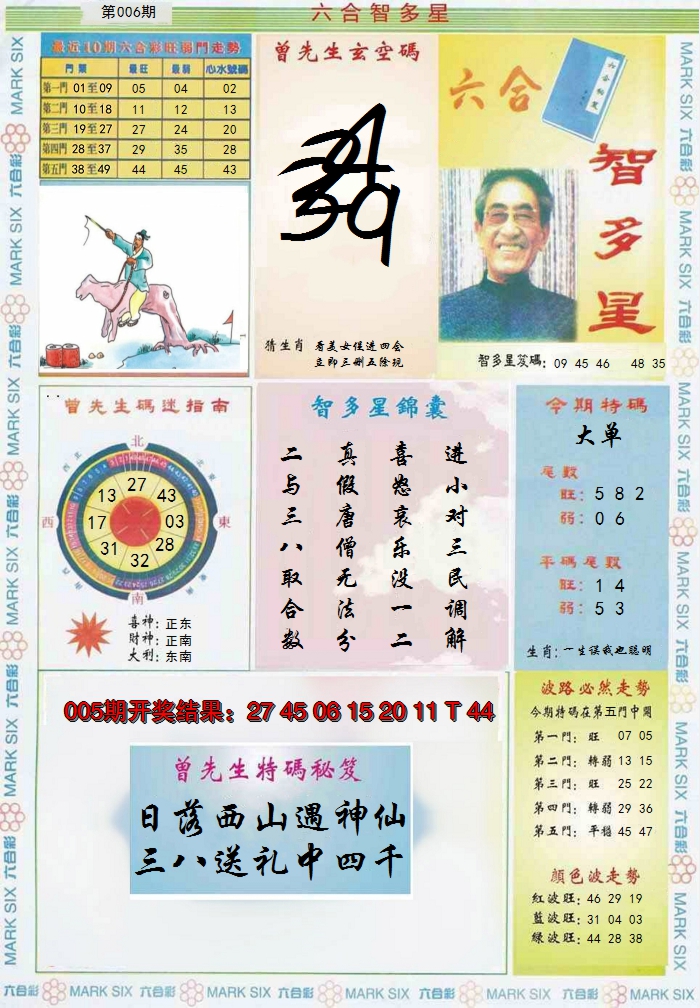 第006期
六合智多星
最近10期六合彩旺弱門走勢
門類 最旺 最弱 心水號碼
第一門 01至09 05 04 02
第二門 10至18 11 12 13
第三門 19至27 27 24 20
第四門 28至37 29 35 28
第五門 38至49 44 45 43
曾先生玄空碼
猜生肖 看美女促进四会
立即三删五除玩
六合
智多星
智多星笈碼: 09 45 46 48 35
曾先生碼迷指南
北
東
南
西
27
43
03
28
32
31
17
13
喜神: 正东
财神: 正南
大利: 东南
智多星錦囊
进小对三民调解
喜怒哀乐没一二
真假唐僧无法分
二与三八取合数
今期特碼
大单
尾數
旺: 5 8 2
弱: 0 6
平碼尾數
旺: 1 4
弱: 5 3
生肖: 一生误我也聪明
005期开奖结果: 27 45 06 15 20 11 T 44
曾先生特碼秘笈
日落西山遇神仙
三八送礼中四千
波路必然走勢
今期特碼在第五門中開
第一門: 旺 07 05
第二門: 轉弱 13 15
第三門: 旺 25 22
第四門: 轉弱 29 36
第五門: 平穩 45 47
顏色波走勢
紅波旺: 46 29 19
藍波旺: 31 04 03
綠波旺: 44 28 38
六合彩 MARK SIX 六合彩 MARK SIX 六合彩 MARK SIX 六合彩 MARK SIX 六合彩 MARK SIX